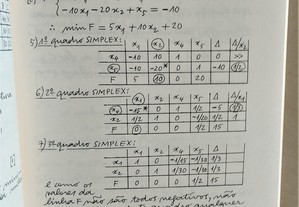 -10x₁-20x₂+x₅=-10
∴ min F=5x₁+10x₂+20
5) 1º quadro SIMPLEX:
x₁ x₂ x₄ x₅ Δ Δ/x₂
x₄ -10 10 1 0 0 >>
x₅ -10 -20* 0 1 -10 1/2
F 5 10 0 0 20
6) 2º quadro SIMPLEX:
x₁ x₂ x₄ x₅ Δ Δ/x₁
x₄ -15* 0 1 1/2 -5 1/3
x₂ 1/2 1 0 1/2 1
F 0 0 0 1/2 15
7) 3º quadro SIMPLEX:
x₁ x₂ x₄ x₅ Δ
x₁ 1 0 -1/15 -1/30 1/3
x₂ 0 1 1/30 -1/30 1/3
F 0 0 0 1/2 15
e como os
valores da
linha F não são todos negativos, não
qualquer